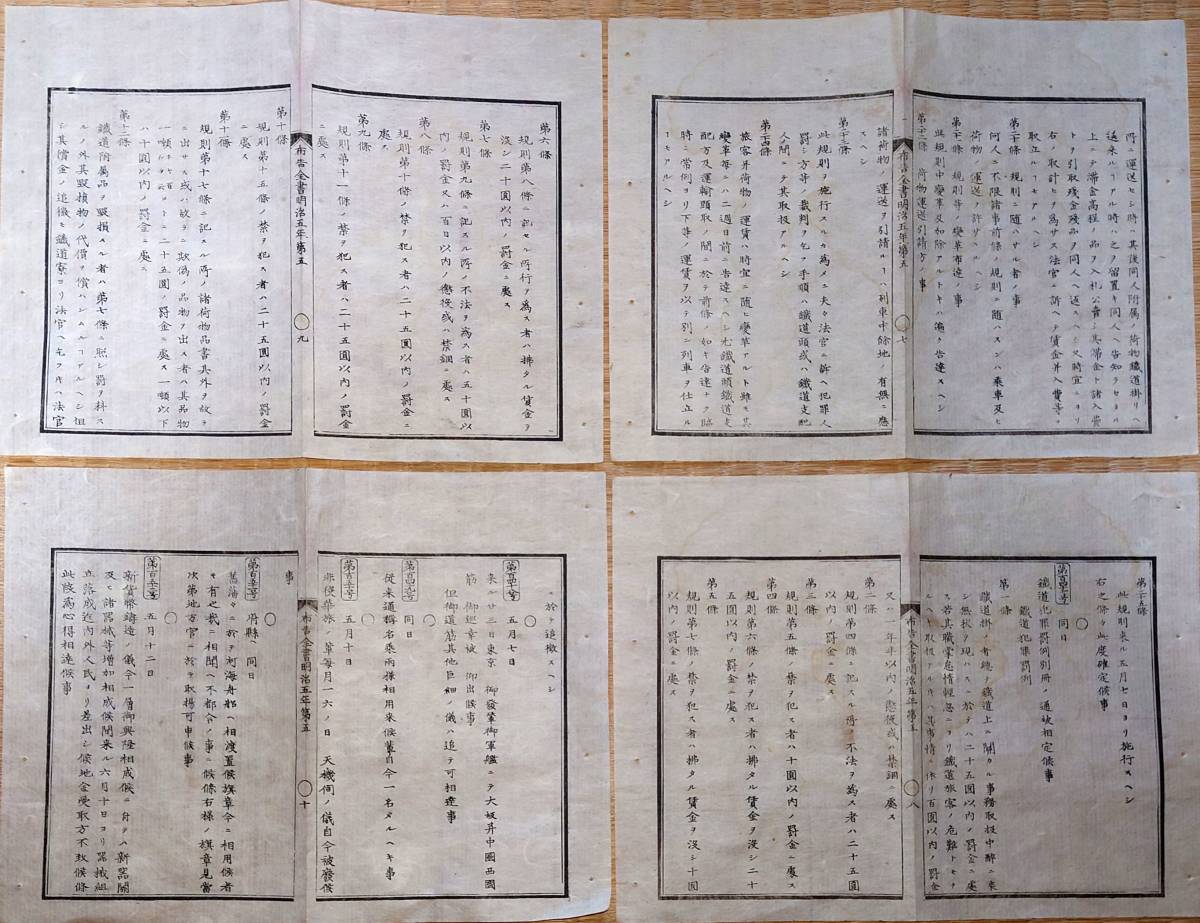 所ニ運送セシ時ハ其後同人附属ノ荷物鐵道掛リヘ
送来ルヿアル時ハ之ヲ留置キ同人ヘ告知ラセタル
上ニテ滞金高程ノ品ヲ入札公賣シ其滞金ト諸入費
トヲ引取残金残品ヲ同人ヘ返スヘシ又時宜ニヨリ
右ノ取計ヒヲ為サス法官ニ訴ヘテ賃金并入費等ヲ
取立ルヿモアルヘシ
第二十條 規則ニ随ハサル者ノ事
何人ニ不限諸事前條ノ規則ニ随ハスンハ乗車及ヒ
荷物ノ運送ヲ許サス
第二十一條 規則等ノ變革布達ノ事
此規則中變革及加除アルトキハ告達スヘシ
第二十二條 荷物運送引請方ノ事
布告全書明治五年第五 〇 七
諸荷物ノ運送ヲ引請ルヿハ列車中餘地ノ有無ニ應
スヘシ
第二十三條
此規則ヲ施行スルカ為メニ夫々法官ニ訴ヘ犯罪人
罰シ方等ノ裁判ヲ乞フ手順ハ鐵道頭或ハ鐵道支配
人間ニテ其取扱アルヘシ
第二十四條
旅客并荷物ノ運賃ハ時宜ニ随ヒ變革アルト雖モ其
變革毎ニハ二週日前ニ告達スヘシ尤鐵道頭鐵道支
配方及運輸頭取ノ間ニ於テ前條ノ如キ告達ナク臨
時ニ常例ヨリ下等ノ運賃ヲ以テ別ニ列車ヲ仕立ル
ヿモアルヘシ
第二十五條
此規則来ル五月七日ヨリ施行スヘシ
右之條々此度確定候事
〇
第百四十七号 同日
鐵道犯罪罰例別冊ノ通被相定候事
鐵道犯罪罰例
第一條
鐵道掛ノ者總テ鐵道上ニ関カル事務取扱中酔ニ乗
シ無状ヲ現ハスニ於テハ二十五圓以内ノ罰金ニ處
ス若其職掌怠惰輕忽ニヨリ鐵道旅客ノ危難トモナ
ルヘキ取扱アルハ其事情ニ依リ百圓以内ノ罰金
布告全書明治五年第五 〇 八
又ハ一年半以内ノ懲役或ハ禁錮ニ處ス
第二條
規則第四條ニ記スル所ノ不法ヲ為ス者ハ二十五圓
以内ノ罰金ニ處ス
第三條
規則第五條ノ禁ヲ犯ス者ハ十圓以内ノ罰金ニ處ス
第四條
規則第六條ノ禁ヲ犯ス者ハ拂タル賃金ヲ没シ二十
五圓以内ノ罰金ニ處ス
第五條
規則第七條ノ禁ヲ犯ス者ハ拂タル賃金ヲ没シ十圓
以内ノ罰金ニ處ス
第六條
規則第八條ニ記セル所行ヲ為ス者ハ拂タル賃金ヲ
没シ二十圓以内ノ罰金ニ處ス
第七條
規則第九條ニ記スル所ノ不法ヲ為ス者ハ五十圓以
内ノ罰金又ハ百日以内ノ懲役或ハ禁錮ニ處ス
第八條
規則第十條ノ禁ヲ犯ス者ハ二十五圓以内ノ罰金ニ
處ス
第九條
規則第十一條ノ禁ヲ犯ス者ハ二十五圓以内ノ罰金
ニ處ス
布告全書明治五年第五 〇 九
第十條
規則第十五條ノ禁ヲ犯ス者ハ二十五圓以内ノ罰金
ニ處ス
第十一條
規則第十七條ニ記スル所ノ諸荷物品書其外ヲ故ラ
ニ出サス或ハ故ラニ欺偽ノ品物ヲ出ス者ハ其品物
一噸ニ二十五圓ノ罰金ニ處ス一噸以下
ハ十圓以内ノ罰金ニ處ス
第十二條
鐵道附属品ヲ毀損スル者ハ第七條ニ照シ罰ヲ科ス
ルノ外其毀損物ノ代價ヲ償ハシムルヿアルヘシ但
シ其償金ノ追徴ヲ鐵道寮ヨリ法官ヘ乞フキハ法官
ニ於テ追徴スヘシ
〇
第百四十八号 五月七日
来ル廿三日東京 御發輦御軍艦ニテ大坂并中國西國
筋 御巡幸被 仰出候事
但御道筋其他巨細ノ儀ハ追テ可相達事
〇
第百四十九号 同日
従来通稱名乗両様相用来候輩自今一名タルヘキ事
〇
第百五十号 五月十日
非役華族ノ輩毎月一六ノ日 天機伺ノ儀自今被廢候
布告全書明治五年第五 〇 十
事
〇
第百五十一号 府縣ヘ 同日
舊藩々ニ於テ河海舟舩ヘ相渡置候旗章今ニ相用候者
モ有之哉ニ相聞ヘ不都合ノ事ニ候條右様ノ旗章見當
次第地方官ニ於テ取揚可申候事
〇
第百五十二号 五月十二日
新貨幣鋳造ノ儀今一層御興隆相成候ニ付テハ新器開
及ヒ諸器械等増加相成候間来ル六月十日ヨリ器械組
立落成迄内外人民ヨリ差出シ候地金受取方不致候條
此段為心得相達候事